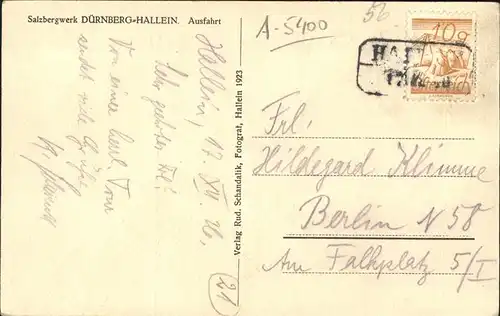 Salzbergwerk DÜRNBERG-HALLEIN. Ausfahrt
Hallein, 17. XII. 26.
Sehr geehrtes Frl.!
Von einer Tour
sendet viele Grüße
Verlag Rud. Schandalik, Fotograf, Hallein 1923
A-5400
56
10g
HA
Frl.
Hildegard Klimme
Berlin N 58
Am Falkplatz 5/I
21